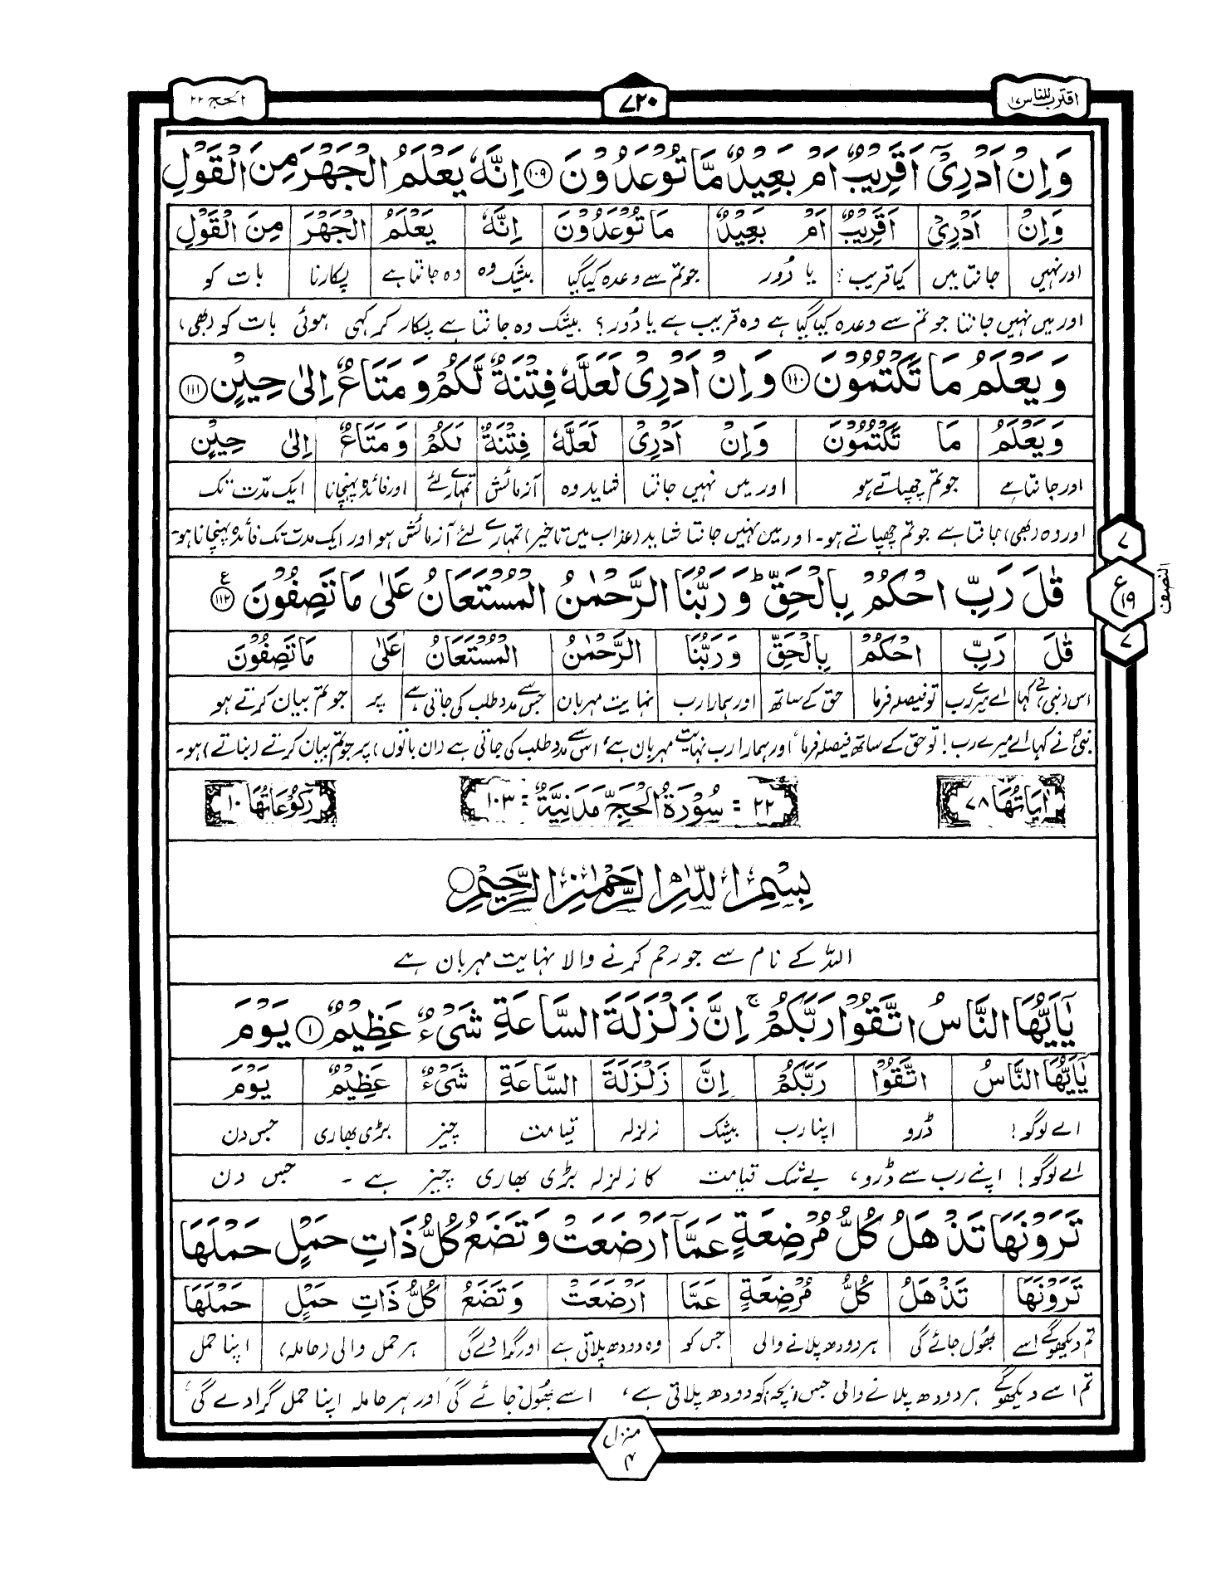 اقترب للناس ۱۷
۷۲۰
الحج ۲۲
وَاِنْ اَدْرِىْۤ اَقَرِيْبٌ اَمْ بَعِيْدٌ مَّا تُوْعَدُوْنَ ۱۰۹ اِنَّهٗ يَعْلَمُ الْجَهْرَ مِنَ الْقَوْلِ
وَاِنْ اَدْرِىْۤ اَقَرِيْبٌ اَمْ بَعِيْدٌ مَّا تُوْعَدُوْنَ اِنَّهٗ يَعْلَمُ الْجَهْرَ مِنَ الْقَوْلِ
اور نہیں جانتا میں کیا قریب؟ یا دُور جو تم سے وعدہ کیا گیا بیشک وہ وہ جانتا ہے پکارنا بات کو
اور میں نہیں جانتا جو تم سے وعدہ کیا گیا ہے وہ قریب ہے یا دُور؟ بیشک وہ جانتا ہے پکار کر کہی ہوئی بات کو (بھی)
وَيَعْلَمُ مَا تَكْتُمُوْنَ ۱۱۰ وَاِنْ اَدْرِىْ لَعَلَّهٗ فِتْنَةٌ لَّكُمْ وَمَتَاعٌ اِلٰى حِيْنٍ ۱۱۱
وَيَعْلَمُ مَا تَكْتُمُوْنَ وَاِنْ اَدْرِىْ لَعَلَّهٗ فِتْنَةٌ لَّكُمْ وَمَتَاعٌ اِلٰى حِيْنٍ
اور جانتا ہے جو تم چھپاتے ہو اور میں نہیں جانتا شاید وہ آزمائش تمہارے لئے اور فائدہ پہنچانا ایک مدّت تک
اور وہ (بھی) جانتا ہے جو تم چھپاتے ہو۔ اور میں نہیں جانتا شاید (عذاب میں تاخیر) تمہارے لئے آزمائش ہو اور ایک مدت تک فائدہ پہنچانا ہو۔
قٰلَ رَبِّ احْكُمْ بِالْحَقِّ ؕ وَرَبُّنَا الرَّحْمٰنُ الْمُسْتَعَانُ عَلٰى مَا تَصِفُوْنَ ۱۱۲ ع
۷
ع ۱۹
۷
النصف
قٰلَ رَبِّ احْكُمْ بِالْحَقِّ وَرَبُّنَا الرَّحْمٰنُ الْمُسْتَعَانُ عَلٰى مَا تَصِفُوْنَ
اس (نبی) نے کہا اے میرے رب تو فیصلہ فرما حق کے ساتھ اور ہمارا رب نہایت مہربان جس سے مدد طلب کی جاتی ہے پر جو تم بیان کرتے ہو
نبیؐ نے کہا اے میرے رب! تو حق کے ساتھ فیصلہ فرما، اور ہمارا رب نہایت مہربان ہے، اس سے مدد طلب کی جاتی ہے (ان باتوں) پر جو تم بیان کرتے (بناتے) ہو۔
اٰيَاتُهَا ۷۸
۲۲ = سُوْرَةُ الْحَجِّ مَدَنِيَّةٌ = ۱۰۳
رُكُوْعَاتُهَا ۱۰
بِسْمِ اللّٰهِ الرَّحْمٰنِ الرَّحِيْمِ
اللہ کے نام سے جو رحم کرنے والا نہایت مہربان ہے
يٰۤاَيُّهَا النَّاسُ اتَّقُوْا رَبَّكُمْ ۚ اِنَّ زَلْزَلَةَ السَّاعَةِ شَىْءٌ عَظِيْمٌ ۱ يَوْمَ
يٰۤاَيُّهَا النَّاسُ اتَّقُوْا رَبَّكُمْ اِنَّ زَلْزَلَةَ السَّاعَةِ شَىْءٌ عَظِيْمٌ يَوْمَ
اے لوگو! ڈرو اپنا رب بیشک زلزلہ قیامت چیز بڑی بھاری جس دن
اے لوگو! اپنے رب سے ڈرو، بے شک قیامت کا زلزلہ بڑی بھاری چیز ہے۔ جس دن
تَرَوْنَهَا تَذْهَلُ كُلُّ مُرْضِعَةٍ عَمَّاۤ اَرْضَعَتْ وَتَضَعُ كُلُّ ذَاتِ حَمْلٍ حَمْلَهَا
تَرَوْنَهَا تَذْهَلُ كُلُّ مُرْضِعَةٍ عَمَّاۤ اَرْضَعَتْ وَتَضَعُ كُلُّ ذَاتِ حَمْلٍ حَمْلَهَا
تم دیکھو گے اسے بھُول جائے گی ہر دودھ پلانے والی جس کو وہ دودھ پلاتی ہے اور گرا دے گی ہر حمل والی (حاملہ) اپنا حمل
تم اسے دیکھو گے ہر دودھ پلانے والی جس (بچہ) کو دودھ پلاتی ہے، اسے بھُول جائے گی اور ہر حاملہ اپنا حمل گرا دے گی،
منزل ۴